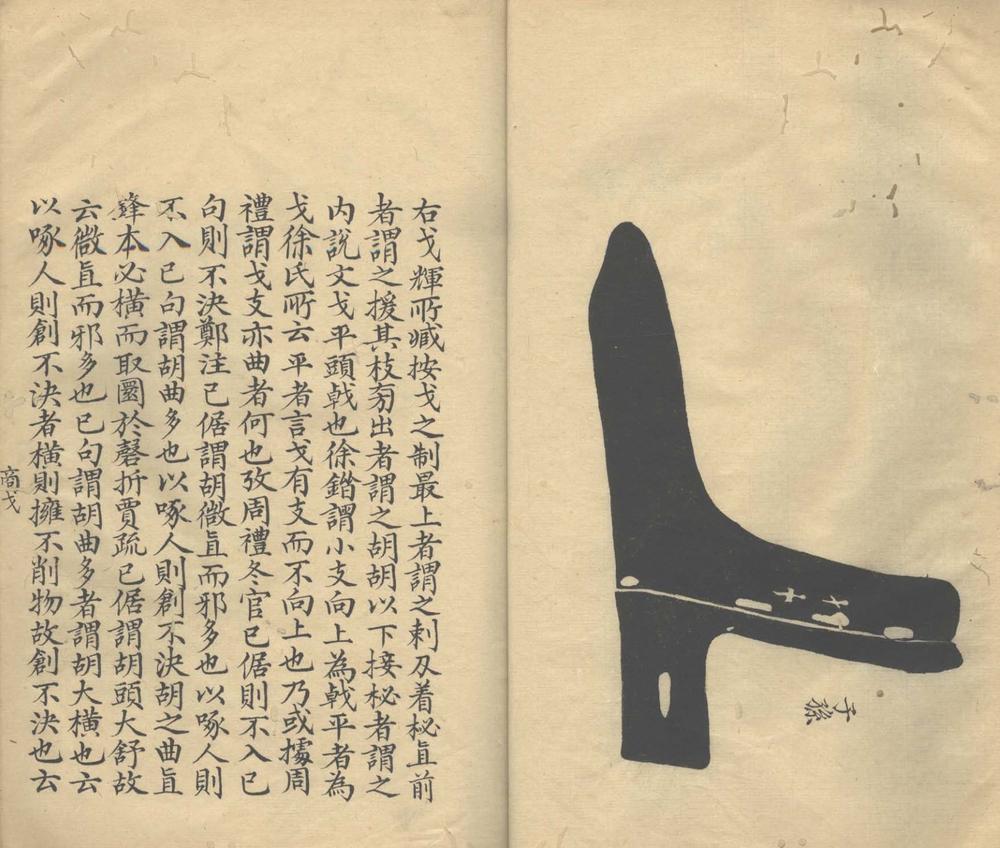 子孫
右戈輝所臧按戈之制最上者謂之刺刄着柲直前
者謂之援其枝旁出者謂之胡胡以下接柲者謂之
内說文戈平頭戟也徐鍇謂小支向上為戟平者為
戈徐氏所云平者言戈有支而不向上也乃或據周
禮謂戈支亦曲者何也攷周禮冬官已倨則不入已
句則不決鄭注已倨謂胡微直而邪多也以啄人則
不入已句謂胡曲多也以啄人則創不決胡之曲直
鋒本必橫而取圜於磬折賈疏已倨謂胡頭大舒故
云微直而邪多也已句謂胡曲多者謂胡大橫也云
以啄人則創不決者橫則擁不削物故創不決也云
商戈